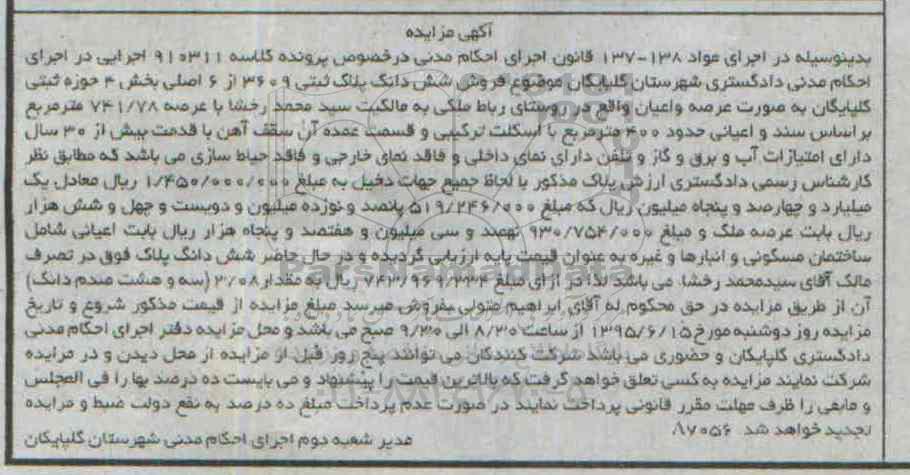 آگهی مزایده
بدینوسیله در اجرای مواد ۱۳۸-۱۳۷ قانون اجرای احکام مدنی درخصوص پرونده کلاسه ۹۱۰۳۱۱ اجرایی در اجرای
احکام مدنی دادگستری شهرستان گلپایگان موضوع فروش شش دانگ پلاک ثبتی ۳۶۰۹ از ۶ اصلی بخش ۴ حوزه ثبتی
گلپایگان به صورت عرصه واعیان واقع در روستای رباط ملکی به مالکیت سید محمد رخشا با عرصه ۷۴۱/۷۸ مترمربع
بر اساس سند و اعیانی حدود ۴۰۰ مترمربع با اسکلت ترکیبی و قسمت عمده آن سقف آهن با قدمت بیش از ۳۰ سال
دارای امتیازات آب و برق و گاز و تلفن دارای نمای داخلی و فاقد نمای خارجی و فاقد حیاط سازی می باشد که مطابق نظر
کارشناس رسمی دادگستری ارزش پلاک مذکور با لحاظ جمیع جهات دخیل به مبلغ ۱/۴۵۰/۰۰۰/۰۰۰ ریال معادل یک
میلیارد و چهارصد و پنجاه میلیون ریال که مبلغ ۵۱۹/۲۴۶/۰۰۰ پانصد و نوزده میلیون و دویست و چهل و شش هزار
ریال بابت عرصه ملک و مبلغ ۹۳۰/۷۵۴/۰۰۰ نهصد و سی میلیون و هفتصد و پنجاه هزار ریال بابت اعیانی شامل
ساختمان مسکونی و انبارها و غیره به عنوان قیمت پایه ارزیابی گردیده و در حال حاضر شش دانگ پلاک فوق در تصرف
مالک آقای سیدمحمد رخشا می باشد لذا در ازای مبلغ ۷۴۳/۹۶۱/۲۳۴ ریال به مقدار ۳/۰۸ (سه و هشت صدم دانگ)
آن از طریق مزایده در حق محکوم له آقای ابراهیم متولی بفروش میرسد مبلغ مزایده از قیمت مذکور شروع و تاریخ
مزایده روز دوشنبه مورخ ۱۳۹۵/۶/۱۵ از ساعت ۸/۳۰ الی ۹/۳۰ صبح می باشد و محل مزایده دفتر اجرای احکام مدنی
دادگستری گلپایگان و حضوری می باشد شرکت کنندگان می توانند پنج روز قبل از مزایده از محل دیدن و در مزایده
شرکت نمایند مزایده به کسی تعلق خواهد گرفت که بالاترین قیمت را پیشنهاد و می بایست ده درصد بها را فی المجلس
و مابقی را ظرف مهلت مقرر قانونی پرداخت نمایند در صورت عدم پرداخت مبلغ ده درصد به نفع دولت ضبط و مزایده
تجدید خواهد شد ۸۷۰۵۶/
مدیر شعبه دوم اجرای احکام مدنی شهرستان گلپایگان
ParsNamadData